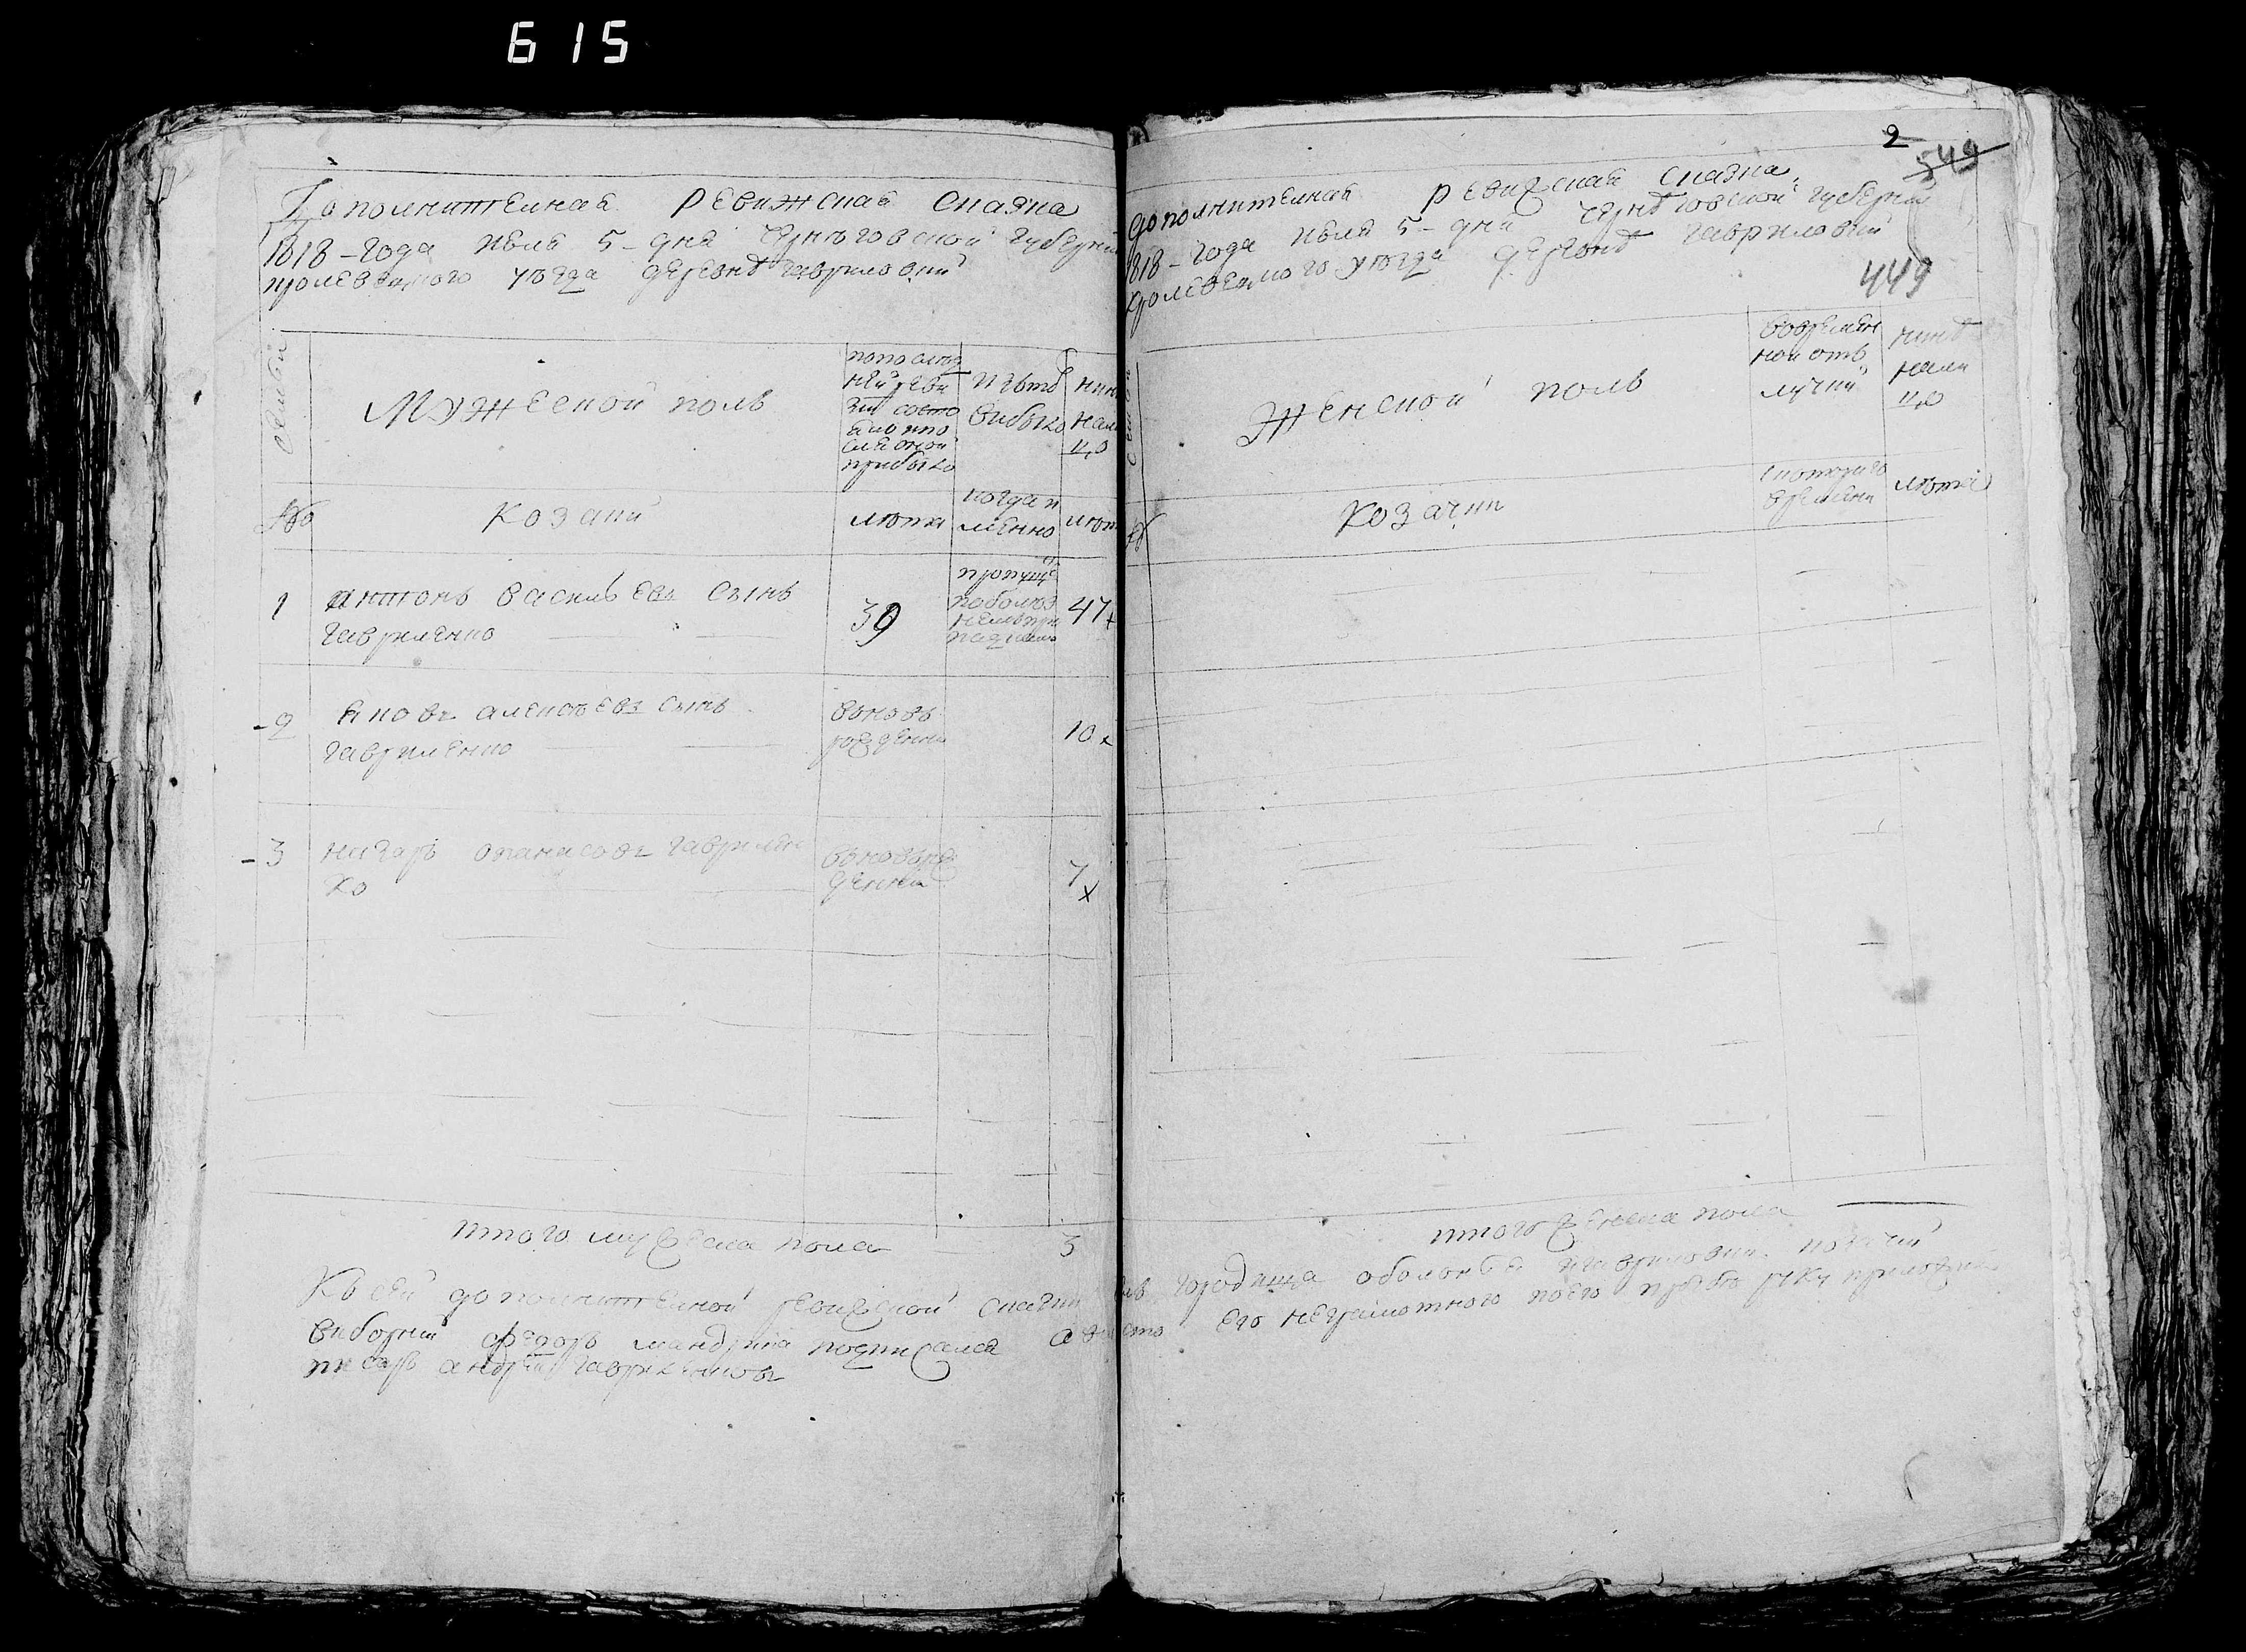 615
Дополнителная Ревижская Сказка
1818-года июля 5-дня Черниговской губернии
Кролевецкого уезда деревне Гавриловки
семьи
Мужеской полъ
по послед
ней реви
зии состо
яло и по
сле оной
прибыло
изъ того
выбыло
ныне
нали
цо
№
Козаки
лета
когда и
менно
лета
1
Антонъ Васильевъ сынъ
Гавриленко
39
47
2
Яковъ Алексеевъ сынъ
Гавриленко
вновь
рожденни
10
3
Назаръ Опанасовъ Гаврилен
ко
вновьрож
денни
7
итого мужеска пола 3
Къ сей дополнителной ревижской сказки
виборний Федоръ Мандрика подписался
писаръ Андрей Гавриленковъ
2
549
Дополнителная Ревизская Сказка
1818-года июля 5-дня Черниговской губернии
Кролевецкого уезда деревне Гавриловки
449
Женской полъ
во времен
ной отъ
лучки
ныне
нали
цо
№
Козачки
с которого
времени
лета
итого женска пола
городища Оболонья и Гавриловки козачий
его неграмотного по его прозбе руку приложилъ